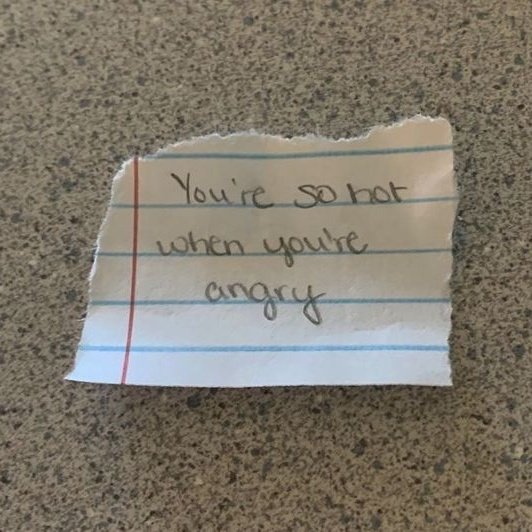 You're so hot
when you're
angry